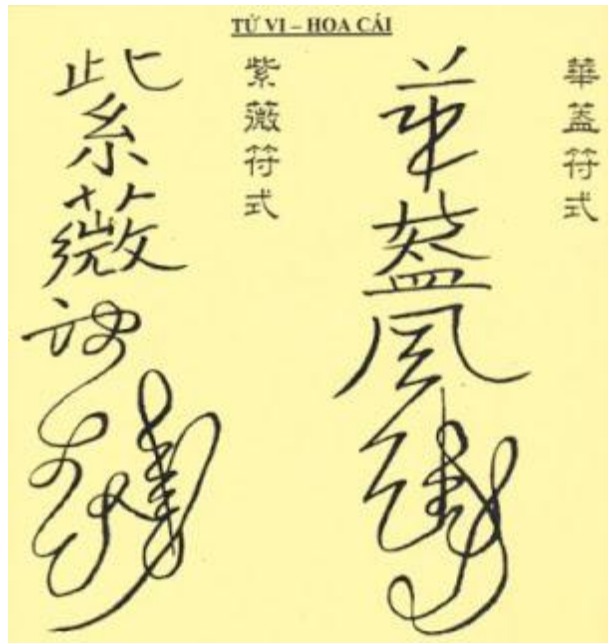 TỬ VI – HOA CÁI
華蓋符式
華蓋
紫薇符式
紫薇